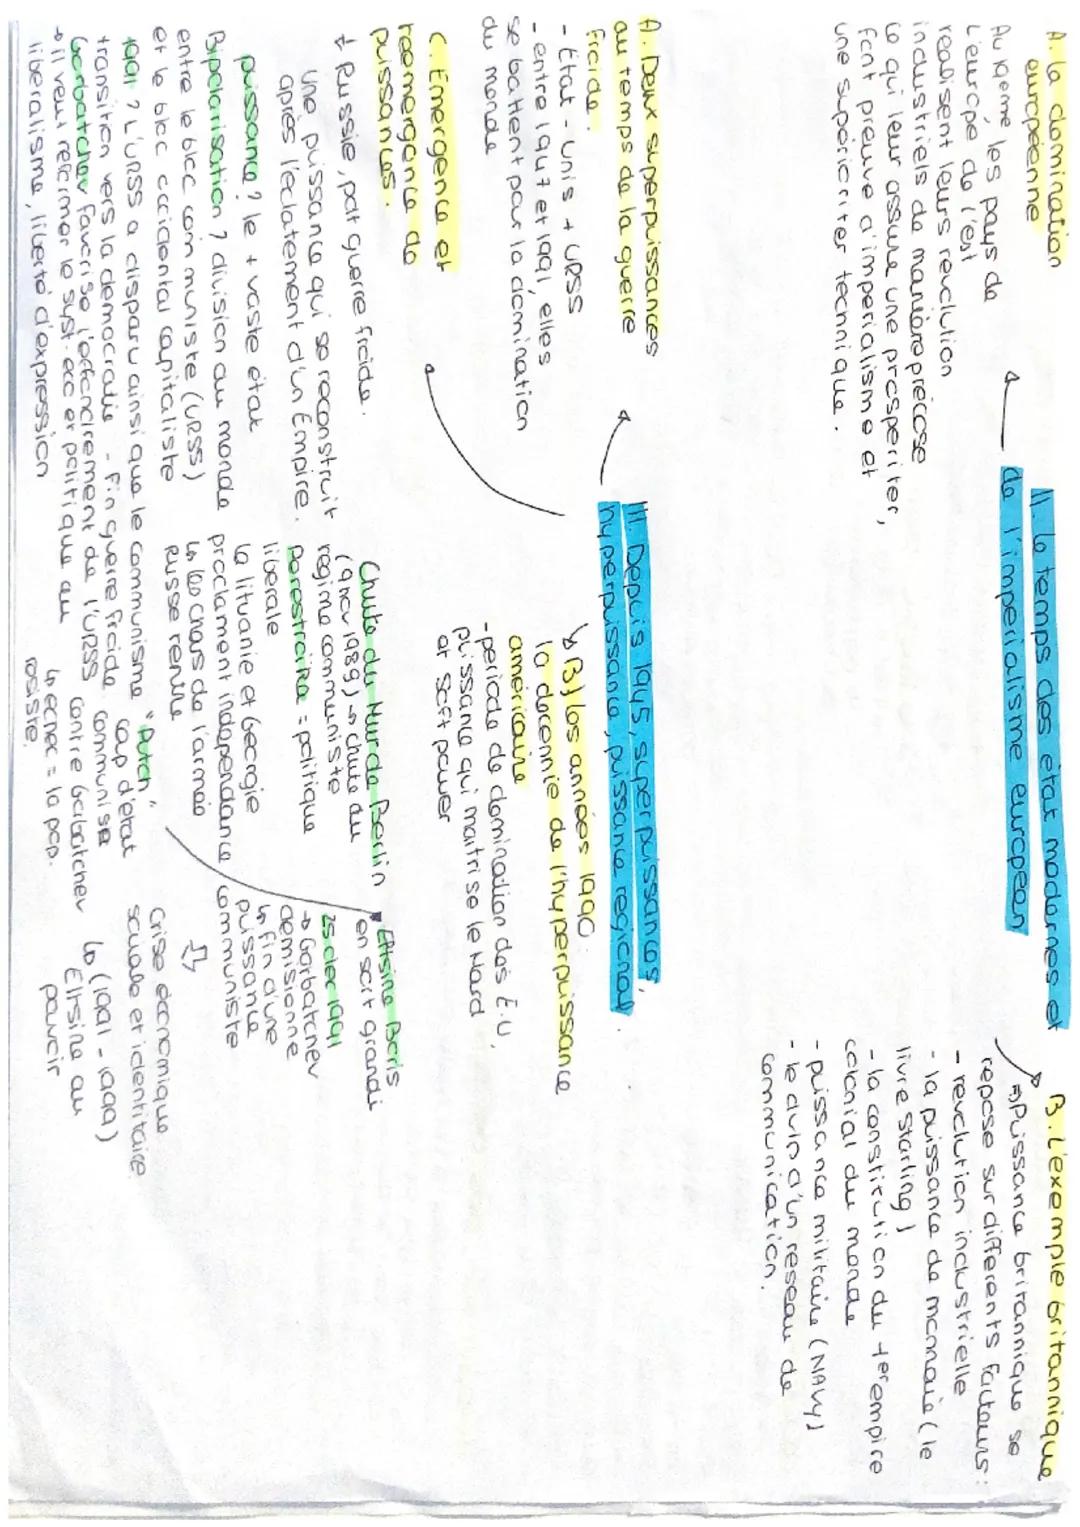 II le temps des état modernes et
de l'imperialisme européen
A. la domination
européenne
Au 19eme, les pays de
L'europe de l'est
réalisent leurs revolution
industriels de manière précose
ce qui leur assure une prosperiter,
font preuve d'imperialisme et
une supérioriter technique.
B. L'exemple britannique
⇒ Puissance britannique se
repose sur differents facteurs:
- revolution industrielle
- la puissance de monnaie (le
livre Starling)
- la constitution du 1er empire
colonial du monde
- puissance militaire (NAVY)
- le d'un réseau de
communication.
III. Depuis 1945, superpuissances,
hyperpuissance, puissance regional.
A. Deux superpuissances
au temps de la guerre
froide.
- État-unis + URSS
- entre 1947 et 1991, elles
se battent pour la domination
du monde
↳ B) les années 1990:
la decennie de l'hyperpuissance
américaine
- periode de domination des É.U,
puissance qui maitrise le Hard
et soft power
C. Émergence et
réémergence de
puissances.
↓ Russie, post guerre froide.
Une puissance qui se reconstruit
après l'éclatement d'un Empire.
puissance? le + vaste état
Bipolarisation? division du monde
entre le bloc communiste (URSS)
et le bloc occidental capitaliste
1991? L'URSS a disparu ainsi que le communisme
transition vers la democratie - fin guerre froide.
Gorbatchev favorise l'effondrement de l'URSS
→ il veut reformer le syst. eco et politique au
liberalisme, liberté d'expression
Chute du Mur de Berlin
(9 nov 1989) → chute du
régime communiste
Perestroïka = politique
liberale
la lituanie et Georgie
proclament independance
↳ les chars de l'armée
Russe rentre
"Putch"
coup d'état
communise
contre Gabatchev
↳ echec = la pop.
résiste.
Eltsine Boris
en sort grandi
25 dec 1991
→ Gorbatchev
demisionne
↳ fin d'une
puissance
communiste
⇩
Crise économique
sociale et identitaire.
↳ (1991-1999)
Eltsine au
pouvoir